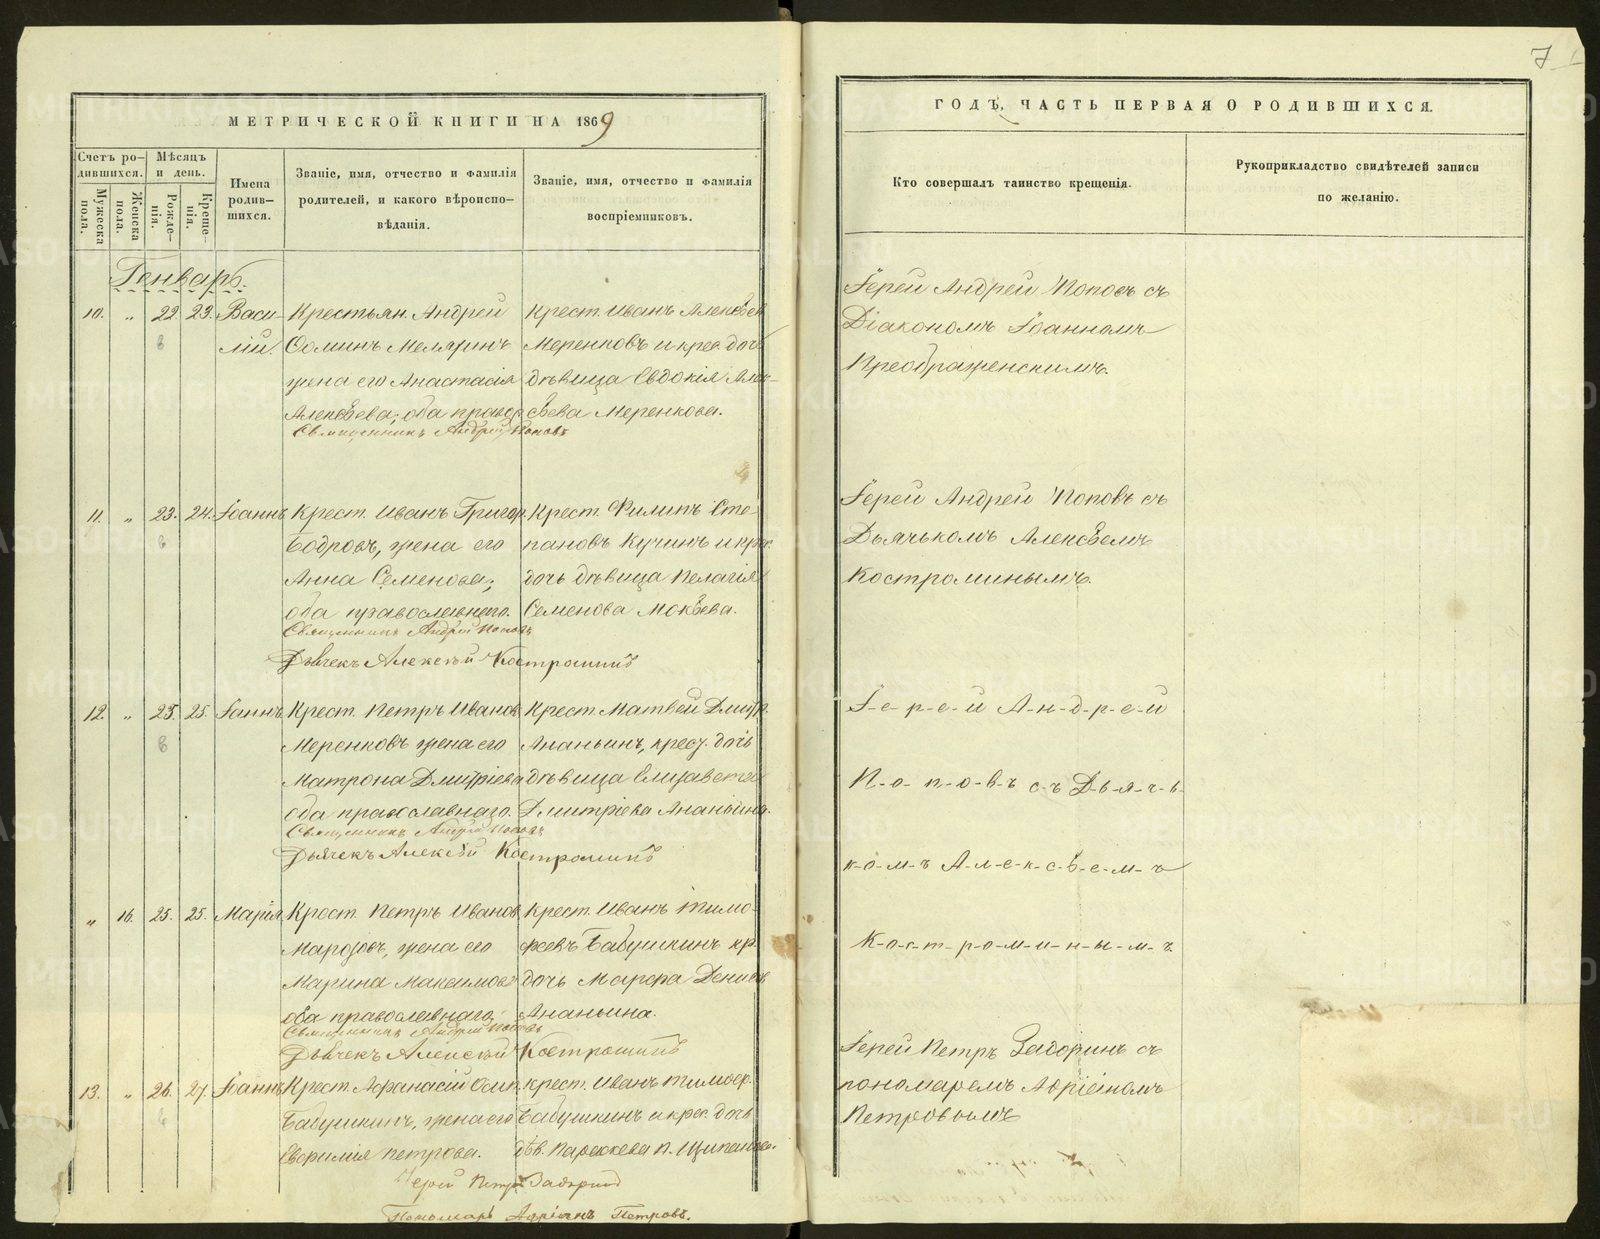 МЕТРИЧЕСКОЙ КНИГИ НА 1869
Счетъ ро-
дившихся.
Мѣсяцъ
и день.
Мужеска
пола.
Женска
пола.
Рожде-
нія.
Креще-
нія.
Имена
родив-
шихся.
Званіе, имя, отчество и фамилія
родителей, и какого вѣроиспо-
вѣданія.
Званіе, имя, отчество и фамилія
воспріемниковъ.
Генварь.
10. " 22 23. Васи-
лій.
Крестьян. Андрей
жена его Анастасія
Алексѣева; оба правос
Священникъ Андрей Поповъ
Крест. Иванъ Алексѣев
Меренковъ и крес. дочь
дѣвица Евдокія Алек-
сѣева Меренкова.
11. " 23. 24. Іоаннъ
Крест. Иванъ Григор.
Бодровъ, жена его
Анна Семенова;
оба православнаго.
Священникъ Андрей Поповъ
Дьячекъ Алексѣй Костроминъ
Крест. Филипъ Сте
пановъ Кучинъ и крес.
дочь дѣвица Пелагія
Семенова Мокѣева.
12. " 25. 25. Іоаннъ
Крест. Петръ Иванов
Меренковъ жена его
Матрона Дмитріева
оба православнаго.
Священникъ Андрей Поповъ
Дьячекъ Алексѣй Костроминъ
Крест. Матвей Дмитр.
Ананьинъ, крест. дочь
дѣвица Елизавета
Дмитріева Ананьина.
" 16. 25. 25. Марія
Крест. Петръ Иванов
Марозовъ, жена его
Марина Максимова
оба православнаго.
Священникъ Андрей Поповъ
Дьячекъ Алексѣй Костроминъ
Крест. Иванъ Тимо-
феевъ Бабушкинъ кр.
дочь Марфа Денисов
Ананьина.
13. " 26. 27. Іоаннъ
Крест. Афанасій Осип.
Бабушкинъ, жена его
Евфимія Петрова.
Крест. Иванъ Тимоф.
Бабушкинъ и крес. дочь
дѣв. Параскева П. Щипанова.
Іерей Петръ Задоринъ
Пономарь Адріанъ Петровъ.
7
ГОДЪ, ЧАСТЬ ПЕРВАЯ О РОДИВШИХСЯ.
Кто совершалъ таинство крещенія.
Рукоприкладство свидѣтелей записи
по желанію.
Іерей Андрей Поповъ съ
Діакономъ Іоанномъ
Преображенскимъ.
Іерей Андрей Поповъ съ
Дьячькомъ Алексѣемъ
Костроминымъ.
І-е-р-е-й А-н-д-р-е-й
П-о-п-о-в-ъ с-ъ Д-ь-я-ч-ь-
к-о-м-ъ А-л-е-к-с-ѣ-е-м-ъ
К-о-с-т-р-о-м-и-н-ы-м-ъ
Іерей Петръ Задоринъ съ
пономаремъ Адріаномъ
Петровымъ
METRIKI.GASO-URAL.RU